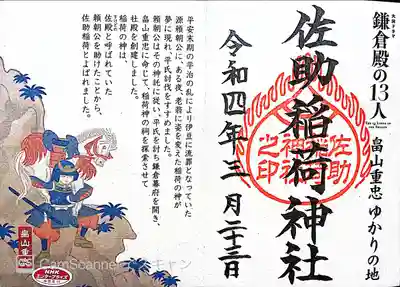 大河ドラマ
鎌倉殿の13人
THE 13 LORDS OF THE SHOGUN
畠山重忠 ゆかりの地
佐助稲荷神社
佐助稲荷神社之印
令和四年三月二十三日
平安末期の平治の乱により伊豆に流罪となっていた
源頼朝公に、ある夜、老翁に姿を変えた稲荷の神が
夢に現れ、平氏討伐をすすめました。
頼朝公はその神託に従い、平氏を討ち鎌倉幕府を開き、
畠山重忠に命じて、稲荷神の祠を探索させて
社殿を創建しました。
稲荷の神は、
佐殿と呼ばれていた
頼朝公を助けたことから、
佐助稲荷とよばれました。
畠山重忠
NHK
エンタープライズ
CamScannerでスキャン